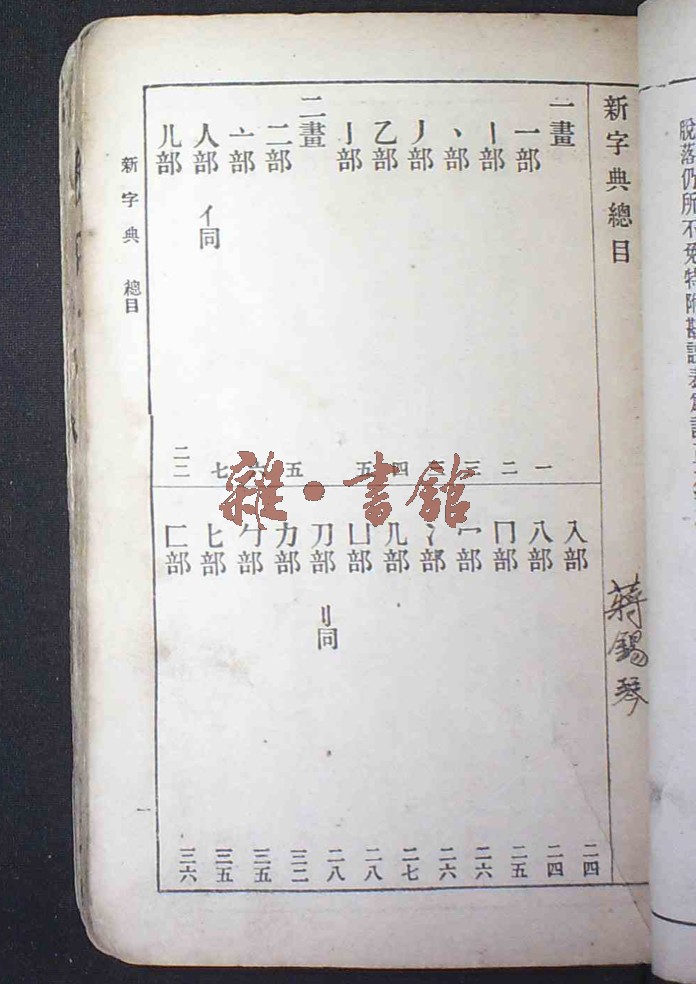 脫落仍所不免特附勘誤表
新字典總目
蔣錫琴
一畫
一部 一
丨部 二
丶部 三
丿部
乙部 四
亅部 五
二畫
二部 五
亠部 六
人部 亻同 七
儿部 二二
入部 二四
八部 二四
冂部 二五
冖部 二六
冫部 二六
几部 二七
凵部 二八
刀部 刂同 二八
力部 三二
勹部 三五
匕部 三五
匚部 三六
新字典 總目 一
雜·書館